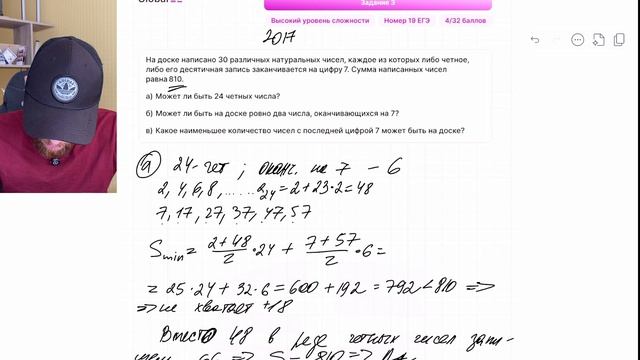 Задание 3
Высокий уровень сложности Номер 19 ЕГЭ 4/32 баллов
2017
На доске написано 30 различных натуральных чисел, каждое из которых либо четное,
либо его десятичная запись заканчивается на цифру 7. Сумма написанных чисел
равна 810.
а) Может ли быть 24 четных числа?
б) Может ли быть на доске ровно два числа, оканчивающихся на 7?
в) Какое наименьшее количество чисел с последней цифрой 7 может быть на доске?
а 24-чет ; оконч. на 7 – 6
2, 4, 6, 8, ...... a24 = 2+23·2=48
7, 17, 27, 37, 47, 57
Smin = (2+48)/2 · 24 + (7+57)/2 · 6 =
= 25·24 + 32·6 = 600 + 192 = 792 < 810 =>
=> не хватает +18
Вместо 48 в ряде четных чисел запи-